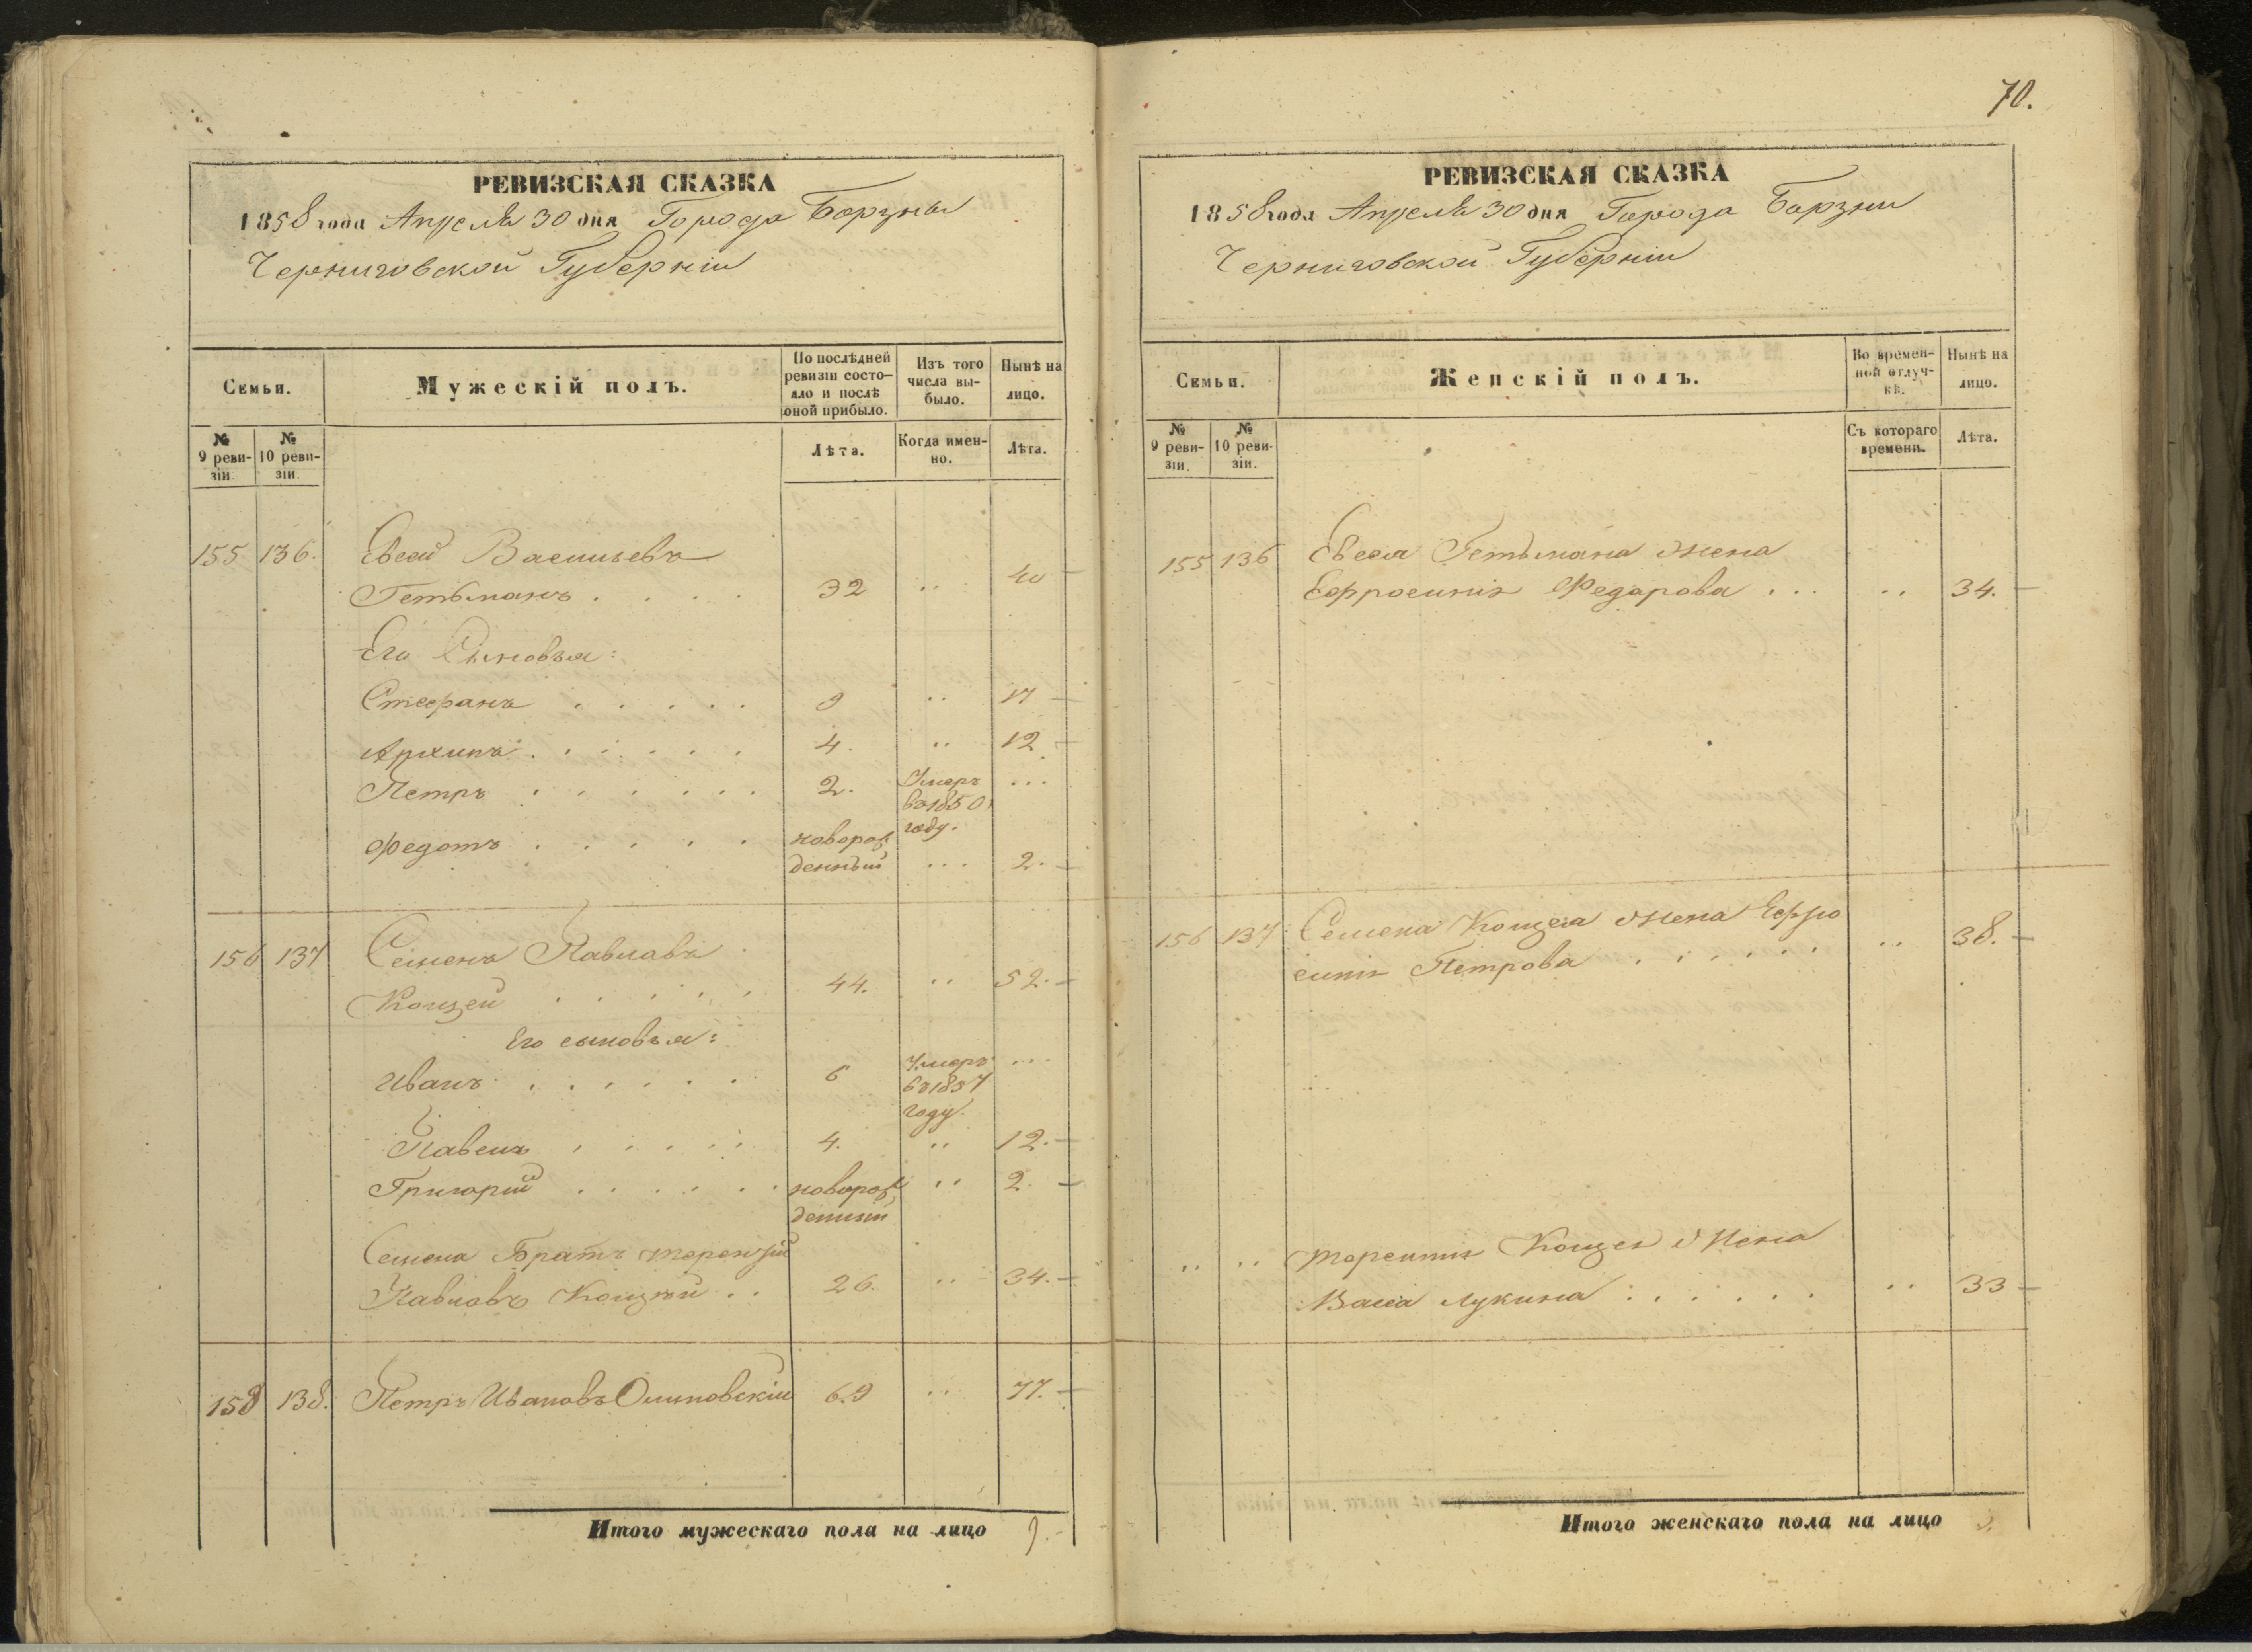 РЕВИЗСКАЯ СКАЗКА
1858 года Апреля 30 дня Города Борзны
Черниговской Губерніи
Семьи.
Мужескій полъ.
По послѣдней
ревизіи состо-
яло и послѣ
оной прибыло.
Изъ того
числа вы-
было.
Нынѣ на
лицо.
№
9 реви-
зіи
№
10 реви-
зіи.
Лѣта.
Когда имен-
но.
Лѣта.
155 136. Евсей Васильевъ
Гетьманъ . . . . 32 .. 40
Его Сыновья:
Стефанъ . . . . . 9 .. 17
Архипъ . . . . . . 4. .. 12
Петръ . . . . . . 2. Умеръ ...
въ 1850
году.
Федотъ . . . . . новорож
денный ... 2.
156 137 Семенъ Павловъ
Кощей . . . . . 44. .. 52.
Его сыновья:
Иванъ . . . . . . 6 Умеръ ...
въ 1857
году.
Павелъ . . . . . 4. .. 12.
Григорій . . . . . . новорож .. 2
денный
Семена Братъ Терентій
Павловъ Кощей . . 26. .. 34.
158 138. Петръ Ивановъ 69 .. 77.
Итого мужескаго пола на лицо 9.
70.
РЕВИЗСКАЯ СКАЗКА
1858 года Апреля 30 дня Города Борзны
Черниговской Губерніи
Семьи.
Женскій полъ.
Во времен-
ной отлуч-
кѣ.
Нынѣ на
лицо.
№
9 реви-
зіи.
№
10 реви-
зіи.
Съ котораго
времени.
Лѣта.
155 136 Евсея Гетьмана жена
Ефросинія Федорова . . . .. 34.
156 137 Семена Кощея жена Ефро
синія Петрова . . . . . . .. 38.
.. .. Терентія Кощея жена
Васса Лукина . . . . . . .. 33
Итого женскаго пола на лицо 3.